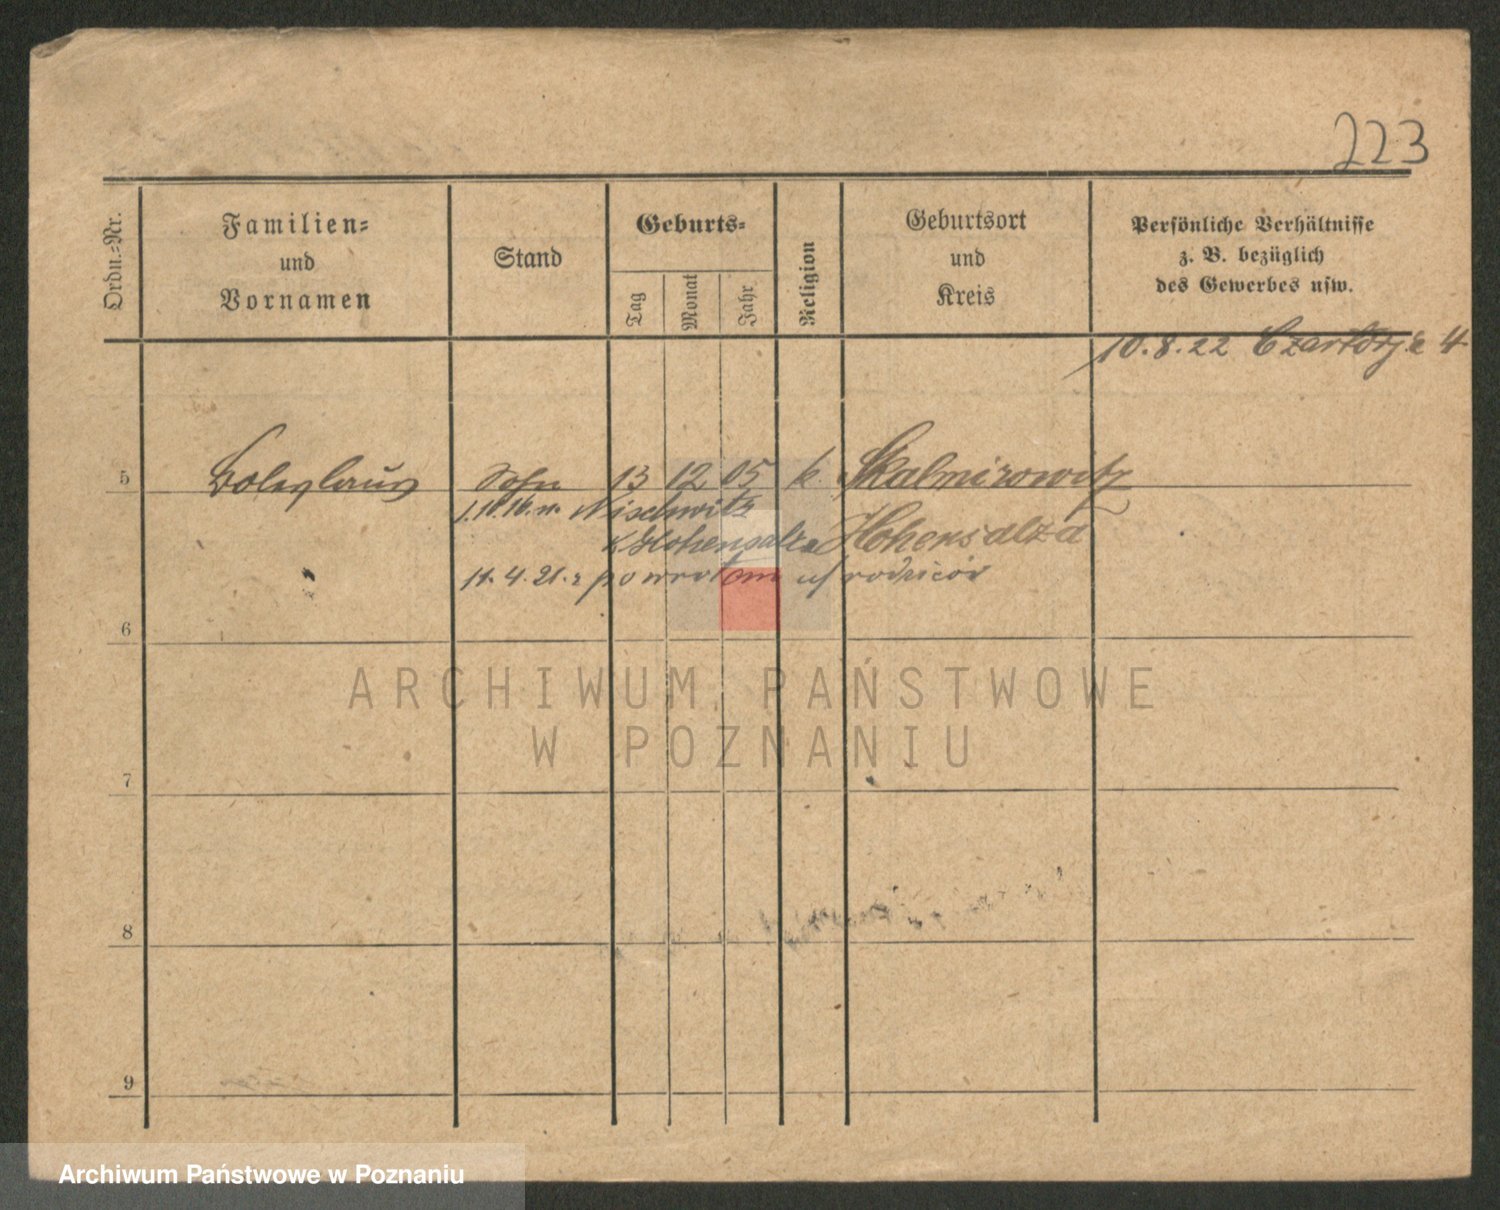 223
Ordn.-Nr.
Familien-
und
Vornamen
Stand
Geburts-
Tag
Monat
Jahr
Religion
Geburtsort
und
Kreis
Persönliche Verhältnisse
z. B. bezüglich
des Gewerbes usw.
10.8.22
5 Boleslaus Sohn 13 12 05 k. Skalmirowitz
Nischwitz
K. Hohensalza Hohensalza
14.4.21. z powrotem u rodziców
6
7
8
9
ARCHIWUM PAŃSTWOWE
W POZNANIU
Archiwum Państwowe w Poznaniu